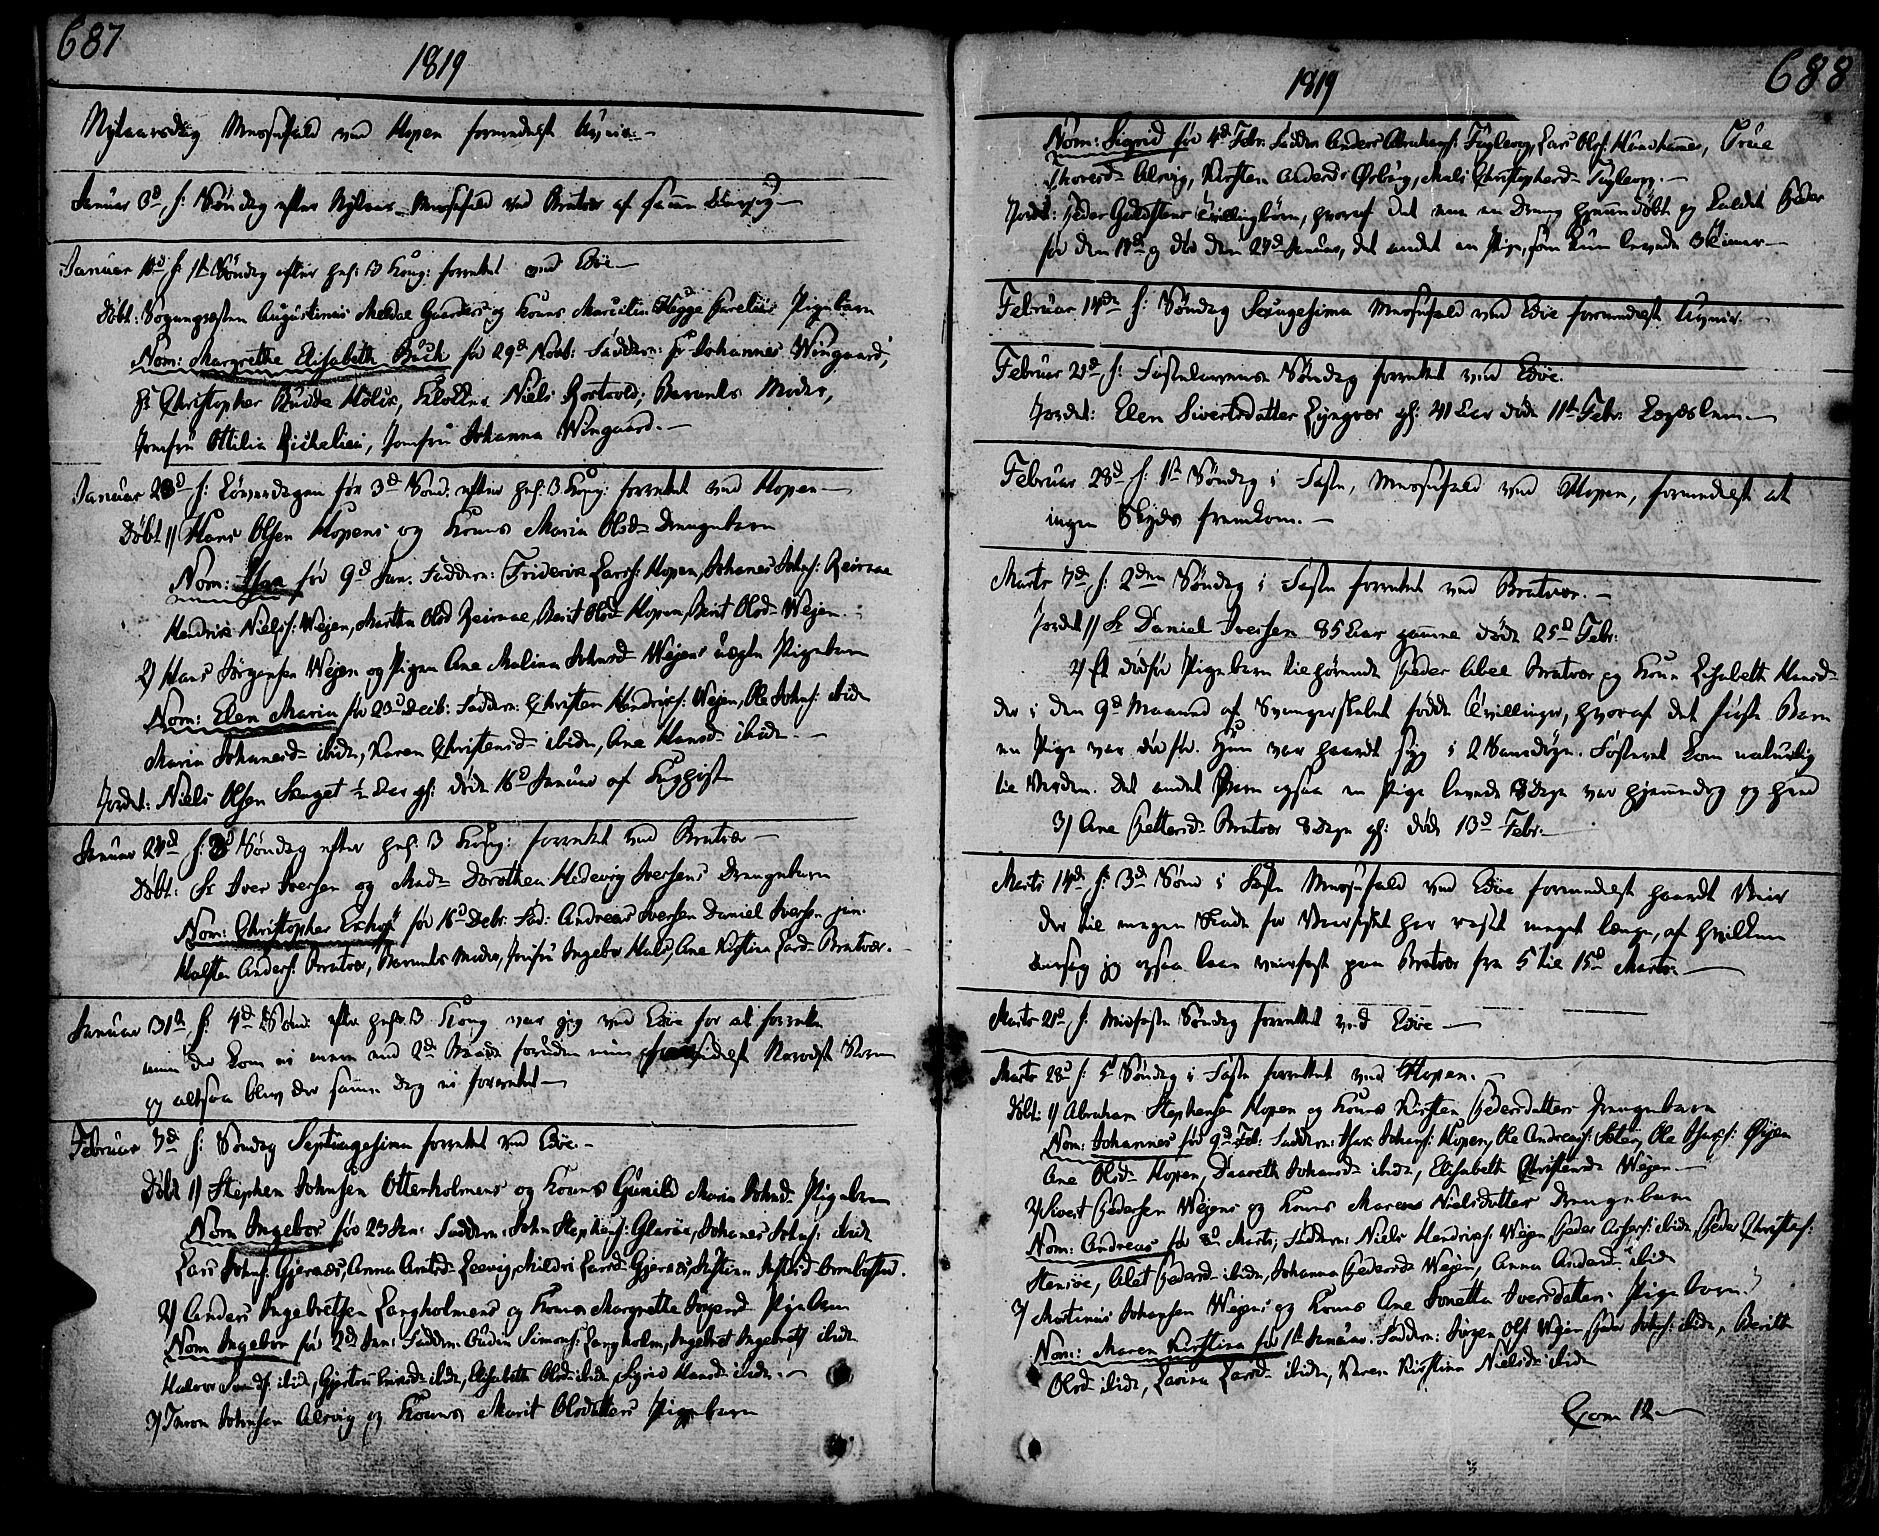 687
1819
Nytaarsdag Messefald ved Hopen formedelst Uveir.
Januar 3d f: Søndag efter Nytaar Messefald ved Bratvær af samme Aarsag
Januar 10d f: 1ste Søndag efter hel: 3 Kong: forrettet ved Edøe
Døbt: Sognepræsten Augustinus Meldal Guarders og Kones Marcilie Hegge Parelius Pigebarn
Nom: Margrethe Elisabeth Buch fød 29d Novb: Faddere: Hr Johannes Wingaard,
Hr Christopher Budde Hølus, Klokker Niels Rostvold, Barnets Moder,
Jomfru Ottilia Richelieu, Jomfru Johanna Wingaard.
Januar 23d f: Løverdagen før 3d Sønd. efter hel: 3 Kong: forrettet ved Hopen
Døbt 1/ Hans Olsen Hopens og Kones Maria Olsd Drengebarn
Nom: fød 9d Jan. Faddere: Friderik Larss: Hopen, Johanes Johns: Reirvae
Hendrik Niels: Wejen, Martha Olsd Reirvae, Berit Olsd Hopen, Berit Olsd Wejen.
2/ Hans Jørgensen Wejen og Pigen Ane Malina Johnsd Wejens uægte Pigebarn
Nom: Elen Maria fød 23d Decb: Faddere: Christen Hendrics: Wejen, Ole Johns: ibide
Maria Johanesd ibide, Karen Christensd ibide, Ane Hansd ibide.
Jordet: Niels Olsen Sanget ½ Aar gl: døde 16d Januar af Kighoste
Januar 24d f: 3d Søndag efter hel: 3 Kong: forrettet ved Bratvær
Døbt: Sr Iver Iversen og Mad. Dorothea Hedevig Iversens Drengebarn
Nom: Christopher fød 16d Decbr: Fad: Andreas Iversen Daniel Iversen jun.
Halsten Anders: Bratvær, Barnets Moder, Jomfru Ingebor Hals, Ane Kirstina Larsd Bratvær.
Januar 31te f: 4d Sønd: efter hel: 3 Kong var jeg ved Edøe for at forrette
men der kom ei mere end 2de Baade foruden min formedelst Nordost Storm
og altsaa blev der samme Dag ei forrettet
Februar 7d f: Søndag Septuagesima forrettet ved Edøe.
Døbt 1/ Stephen Johnsen Otterholmens og Kones Gunild Maria Johnsd Pigebarn
Nom Ingebor fød 23 Jan: Faddere: John Stephens: Glasøe, Johanes Johns: ibide
Lars Johns: Gjernæs, Anna Arntsd Leervig, Mildri Larsd Gjernæs, Kirstina
2/ Anders Ingebretsen Langholmens og Kones Margrethe Jørgensd Pigebarn
Nom Ingebor fød 2d Jan: Faddere Gudin Simons: Langholm, Ingebret Ingebrets: ibide
Halvor ibide, Gjertru ibide, Elisabeth Olsd ibide, Sigrid Hansd ibide.
3/ Taron Johnsen Alsvig og Kones Marit Olsdatters Pigebarn
688
1819
Nom: Sigrid fød 4d Febr. Faddere Anders Abrahams: Fuglevog, Lars Ols: Hamnes, True
Thoresd Alsvig, Kirsten Andersd Ørbeg, Mali Christophersd Fuglevog.
Jordet: Peder Tvillingbørn, hvoraf det ene en Dreng hjemmedøbt og kaldet Peder
fød den 17d og død den 27d Januar, det andet en Pige, som kun levede 3 Timer
Februar 14de f: Søndag Sexagesima Messefald ved Edøe formedelst Uveir.
Februar 21d f: Fastelavens Søndag forrettet ved Edøe.
Jordet: Elen Sivertsdatter Lyngvær gl: 41 Aar døde 11te Febr: Lægdslem.
Februar 28d f: 1st Søndag i Faste, Messefald ved Hopen, formedelst at
ingen Skyds fremkom.
Marts 7d f: 2den Søndag i Faste forrettet ved Bratvær.
Jordet 1/ Sr Daniel Iversen 85 Aar gamme døde 25d Febr:
2/ Et dødfød Pigebarn tilhørende Peder Abel Bratvær og Kone Elisabeth Hansd
der i den 9d Maaned af Svangerskabet fødde Tvillinger, hvoraf det første Barn
en Pige var dødfød. Hun var haardt syg i 2 Samdøgn. Fosteret kom naturlig
til Verden. Det andet Barn ogsaa en Pige levede 8 Dage var hjemmedøbt og heed
3/ Ane Pettersd Bratvær 8 Dage gl: døde 13d Febr.
Marts 14de f: 3d Sønd i Faste Messefald ved Edøe formedelst haardt Veir
der til megen Skade for Vaarfisket har raset meget længe, af hvilken
Aarsag jeg ogsaa laae veirfast paa Bratvær fra 5 til 15d Marts.
Marts 21d f: Midfaste Søndag forrettet ved Edøe
Marts 28d f: 5d Søndag i Faste forrettet ved Hopen.
Døbt 1/ Abraham Stephensen Hopen og Kones Kirsten Pedersdatters Drengebarn
Nom: Johannes fød 9d Feb: Faddere: Isac Johans: Hopen, Ole Andreas: Ole Isacs: Øyen
Ane Olsd Hopen, Daareth Johansd ibide, Elisabeth Christensd Wejen
2/ Sivert Pedersen Wejens og Kones Marens Nielsdatter Drengebarn
Nom: Andreas fød 8d Marts, Faddere: Niels Hendrics: Wejen Peder ibide, Peder Christofs:
Stensøe, Alet Pedersd ibide, Johanna Pedersd Wejen, Anna Andersd ibide
3/ Martinus Johansen Wejens og Kones Ane Jonetta Iversdatters Pigebarn
Nom: Maren Kirstina fød 1te Januar. Faddere: Jørgen Ols: Wejen Peder Johns: ibide, Beritte
Olsd ibide, Larina Larsd ibide, Karen Kirstina Nielsd ibide
Com 12